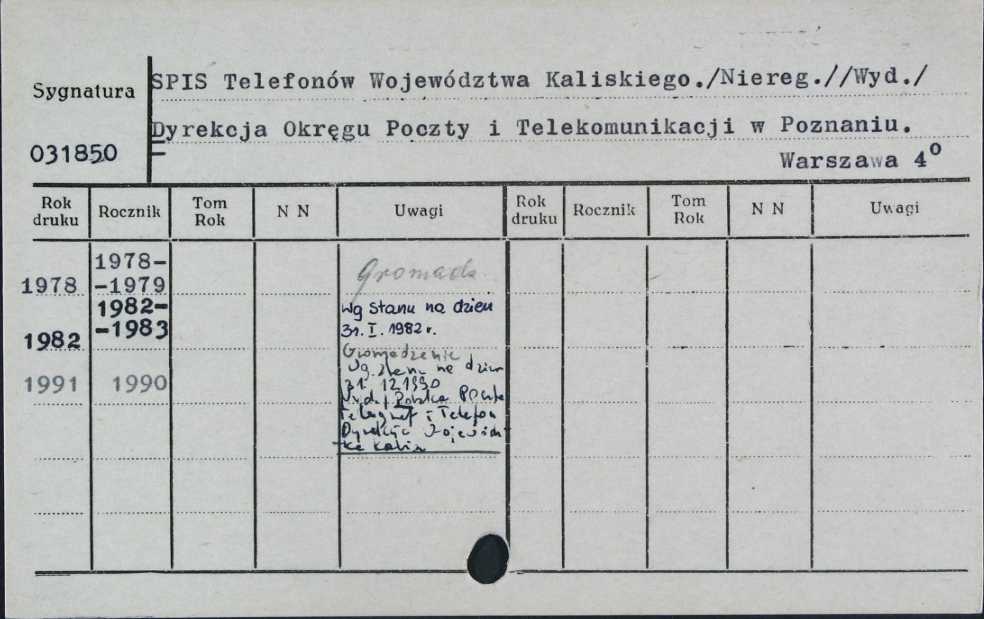 SPIS Telefonów Województwa Kaliskiego./Niereg.//Wyd./
Sygnatura
Dyrekcja Okręgu Poczty i Telekomunikacji w Poznaniu.
031850
Warszawa 4º
Rok druku Rocznik Tom Rok N N Uwagi Rok druku Rocznik Tom Rok N N Uwagi
1978-
1978 -1979
1982-
Wg stanu na dzień
1982 -1983
31. I. 1982 r.
Gromadzenie
Wg stanu na dzień
1991 1990
31. 12.1990
Wyd. Polska Poczta
Telegraf i Telefon
Dyrekcja